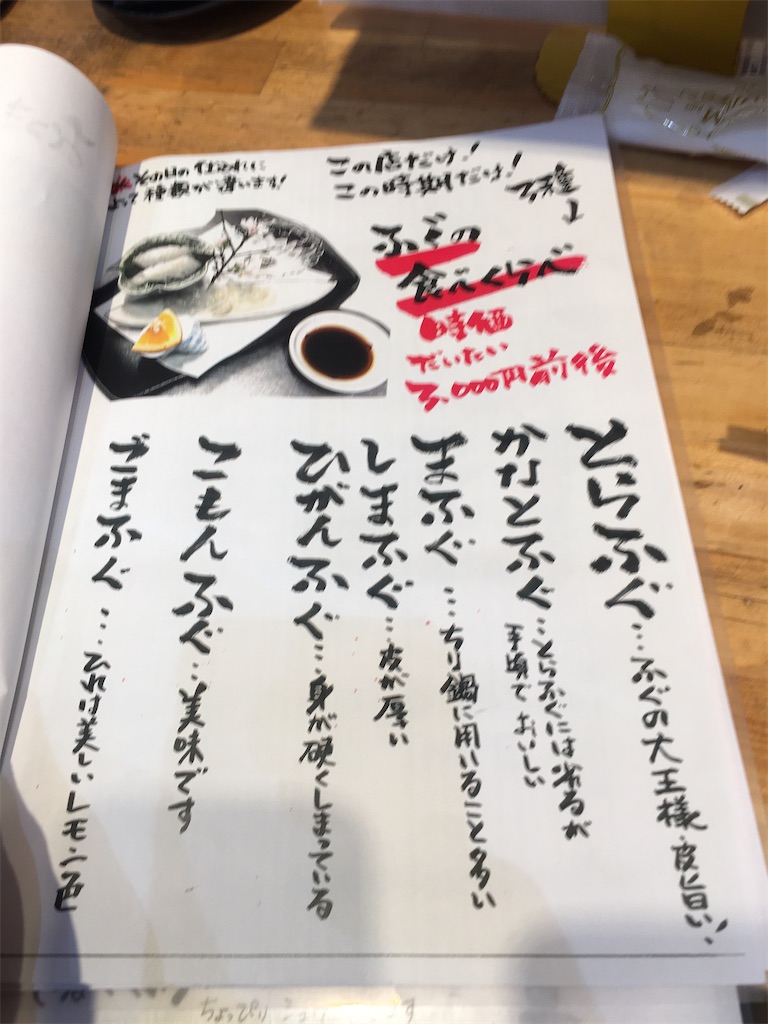 ※その日の仕込れに
よって種類が違います!
この店だけ!
この時期だけ!
7種
↓
ふぐの
食べくらべ
時価
だいたい
3,000円前後
とらふぐ…ふぐの大王様・皮も旨い!
かなとふぐ…とらふぐには劣るが
手頃でおいしい
まふぐ…ちり鍋に用いること多い
しまふぐ…皮が厚い
ひがんふぐ…身が硬くしまっている
こもんふぐ…美味です
ごまふぐ…ひれは美しいレモン色
ちょっぴり